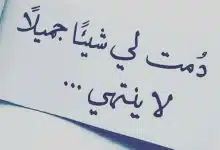 دُمت لي شيئًا جميلًا
لا ينتهي ...